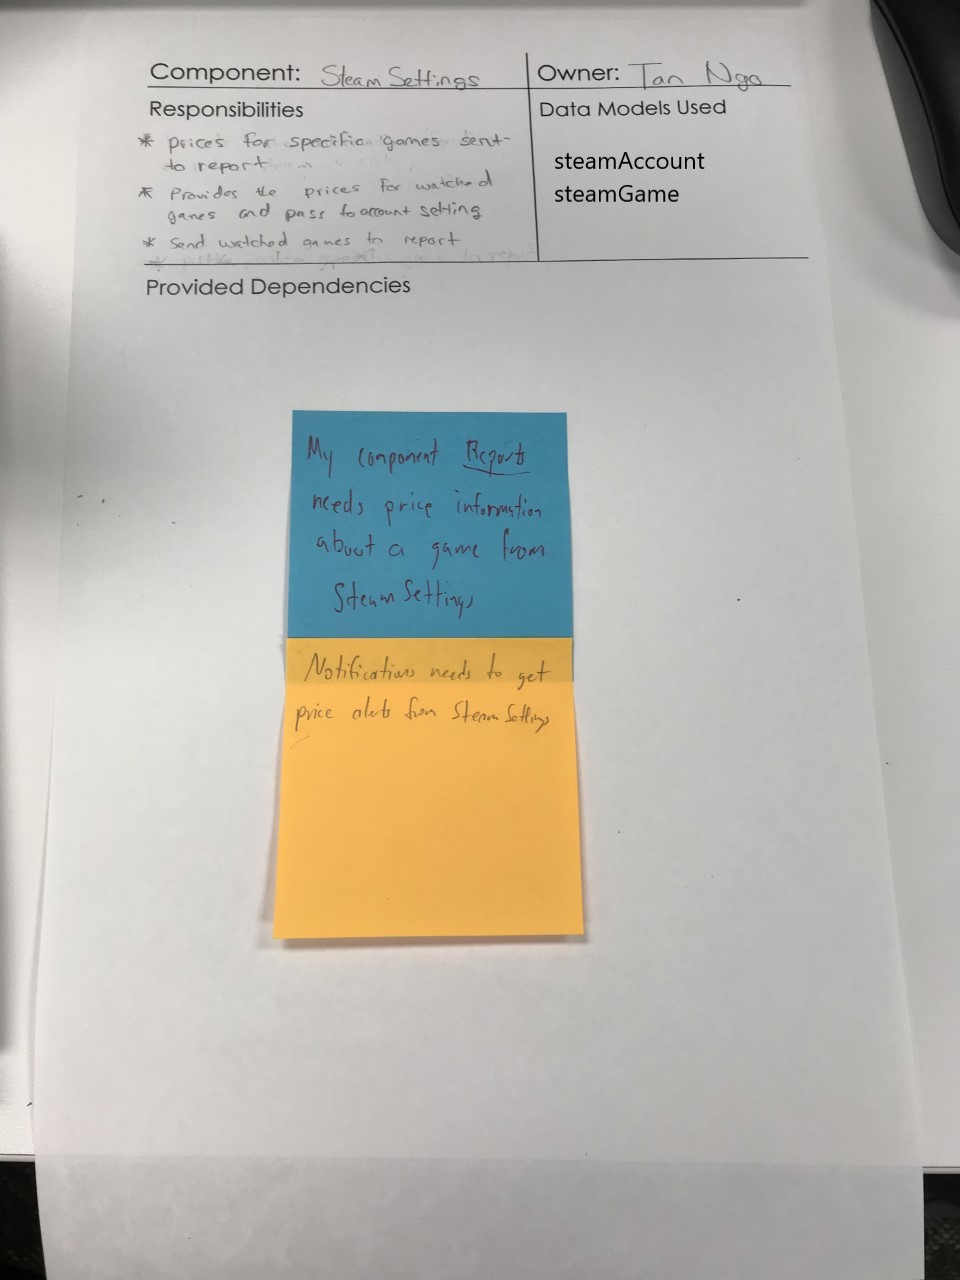 Component: Steam Settings
Owner: Tan Ngo
Responsibilities
* prices for specific games sent
to report
* Provides the prices for watched
games and pass to account setting
* Send watched games to report
Data Models Used
steamAccount
steamGame
Provided Dependencies
My component Reports
needs price information
about a game from
Steam Settings
Notifications needs to get
price alerts from Steam Settings